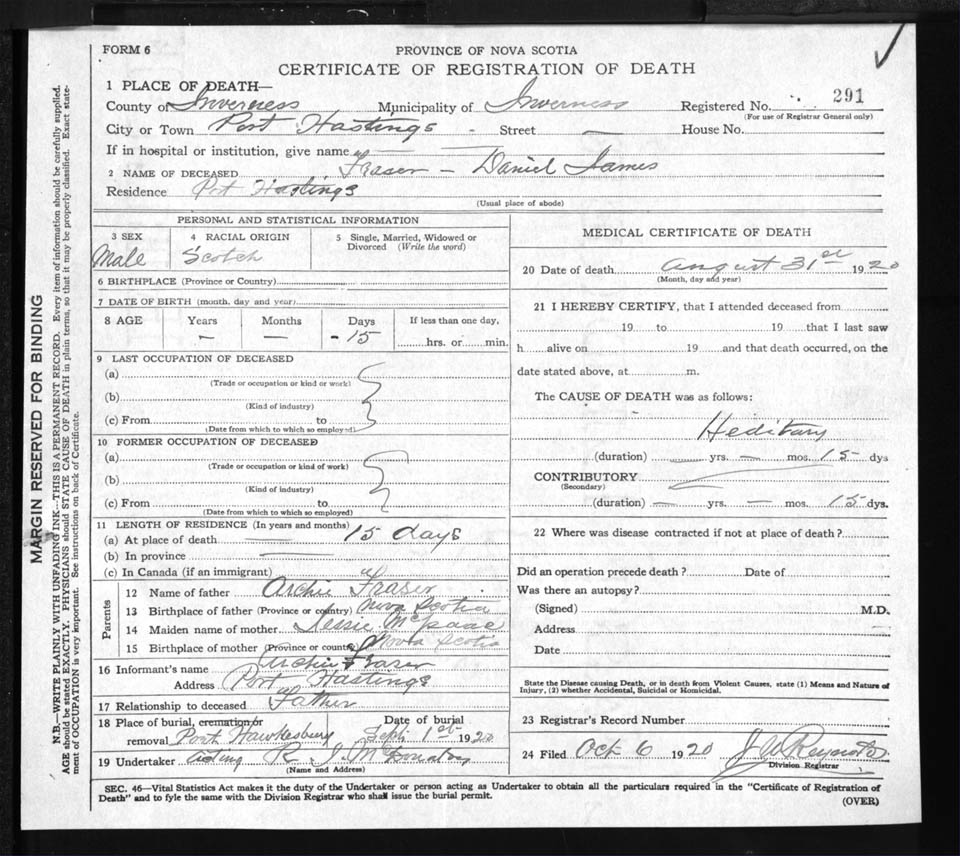 FORM 6
PROVINCE OF NOVA SCOTIA
CERTIFICATE OF REGISTRATION OF DEATH
1 PLACE OF DEATH—
County of Inverness Municipality of Inverness Registered No. 291
(For use of Registrar General only)
City or Town Port Hastings - Street — House No.
If in hospital or institution, give name —
2 NAME OF DECEASED Fraser - Daniel James
Residence Port Hastings
(Usual place of abode)
PERSONAL AND STATISTICAL INFORMATION
3 SEX 4 RACIAL ORIGIN 5 Single, Married, Widowed or Divorced (Write the word)
Male Scotch
6 BIRTHPLACE (Province or Country)
7 DATE OF BIRTH (month, day and year)
8 AGE Years Months Days If less than one day,
— — - 15 hrs. or min.
9 LAST OCCUPATION OF DECEASED
(a)
(Trade or occupation or kind or work)
(b)
(Kind of industry)
(c) From to
(Date from which to which so employed)
10 FORMER OCCUPATION OF DECEASED
(a)
(Trade or occupation or kind of work)
(b)
(Kind of industry)
(c) From to
(Date from which to which so employed)
11 LENGTH OF RESIDENCE (In years and months)
(a) At place of death — 15 days
(b) In province —
(c) In Canada (if an immigrant)
Parents
12 Name of father Archie Fraser
13 Birthplace of father (Province or country) Nova Scotia
14 Maiden name of mother Jessie McIsaac
15 Birthplace of mother (Province or country) Nova Scotia
16 Informant's name Archie Fraser
Address Port Hastings
17 Relationship to deceased Father
18 Place of burial, cremation or Date of burial
removal Port Hawkesbury Sept 1st 1920
19 Undertaker acting R. J. McDonald
(Name and Address)
MEDICAL CERTIFICATE OF DEATH
20 Date of death August 31st 1920
(Month, day and year)
21 I HEREBY CERTIFY, that I attended deceased from
19 to 19 that I last saw
h alive on 19 and that death occurred, on the
date stated above, at m.
The CAUSE OF DEATH was as follows:
Heditary
(duration) — yrs. — mos. 15 dys
CONTRIBUTORY
(Secondary)
(duration) — yrs. — mos. 15 dys.
22 Where was disease contracted if not at place of death?
Did an operation precede death? Date of
Was there an autopsy?
(Signed) M.D.
Address
Date
State the Disease causing Death, or in death from Violent Causes, state (1) Means and Nature of
Injury, (2) whether Accidental, Suicidal or Homicidal.
23 Registrar's Record Number
24 Filed Oct 6 1920
Division Registrar
SEC. 46—Vital Statistics Act makes it the duty of the Undertaker or person acting as Undertaker to obtain all the particulars required in the "Certificate of Registration of
Death" and to fyle the same with the Division Registrar who shall issue the burial permit.
(OVER)
MARGIN RESERVED FOR BINDING
N.B.—WRITE PLAINLY WITH UNFADING INK—THIS IS A PERMANENT RECORD. Every item of information should be carefully supplied.
AGE should be stated EXACTLY. PHYSICIANS should STATE CAUSE OF DEATH in plain terms, so that it may be properly classified. Exact state-
ment of OCCUPATION is very important. See instructions on back of Certificate.